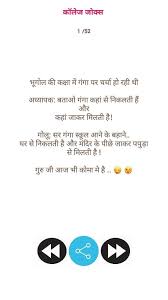 कॉलेज जोक्स
1 /52
भूगोल की कक्षा में गंगा पर चर्चा हो रही थी
अध्यापक: बताओ गंगा कहां से निकलती हैं
और
कहां जाकर मिलती है!
गोलू: सर गंगा स्कूल आने के बहाने..
घर से निकलती है और मंदिर के पीछे जाकर पपुड़ा
से मिलती है !
गुरु जी आज भी कोमा मे हैं .. 😛 😝